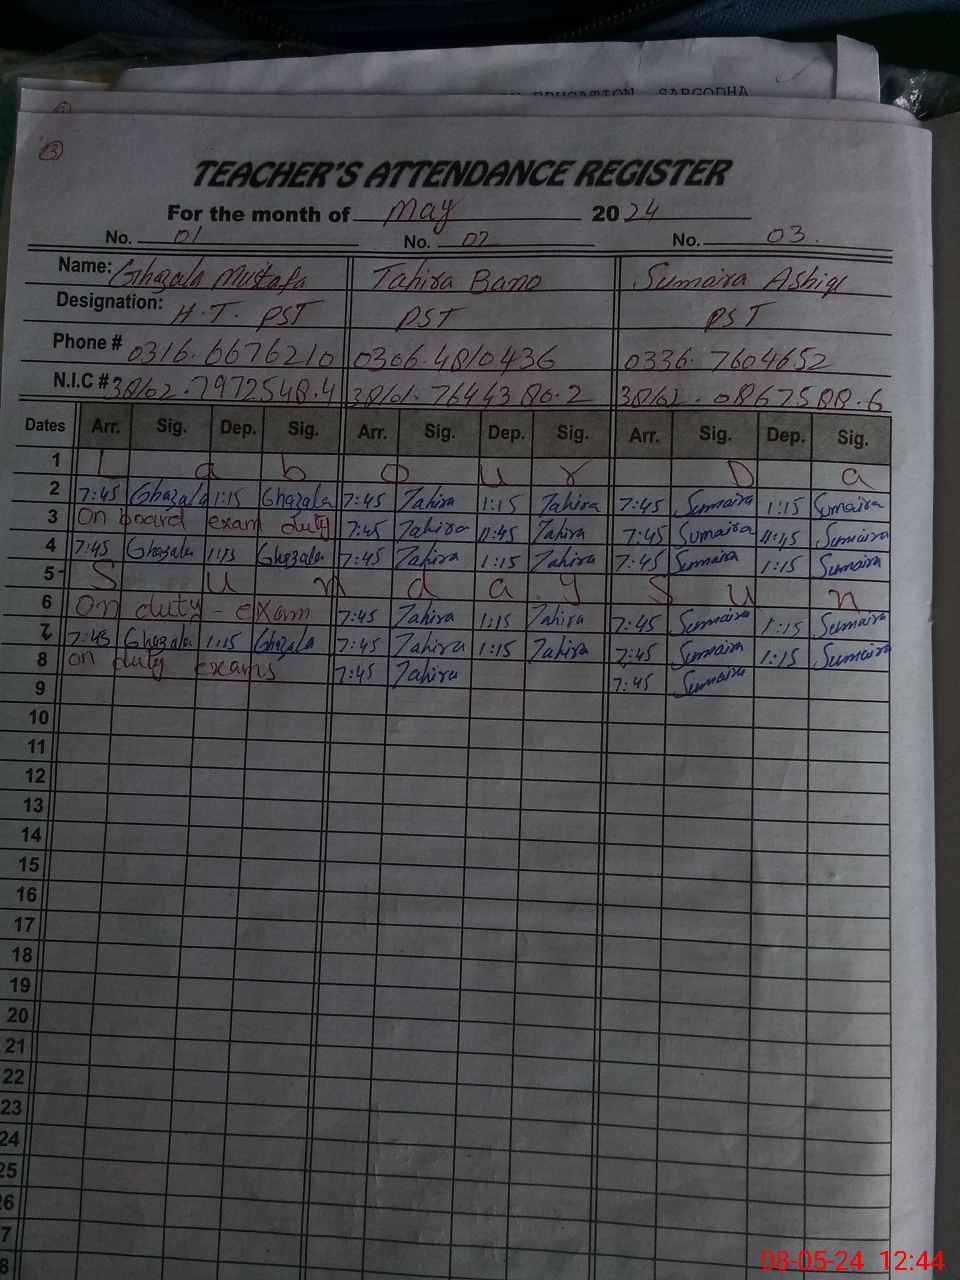 EDUCATION, SARGODHA
3
TEACHER'S ATTENDANCE REGISTER
For the month of May 2024
No. 01 No. 02 No. 03.
Name: Ghazala Mustafa Tahira Bano Sumaira Ashiq
Designation: H.T. PST PST PST
Phone # 0316.6676210 0306.4810436 0336.7604652
N.I.C # 38162.7972548.4 38161.7644386.2 38162.0867588.6
Dates Arr. Sig. Dep. Sig. Arr. Sig. Dep. Sig. Arr. Sig. Dep. Sig.
1 L a b o u r D a
2 7:45 Ghazala 1:15 Ghazala 7:45 Tahira 1:15 Tahira 7:45 Sumaira 1:15 Sumaira
3 On board exam duty 7:45 Tahira 11:45 Tahira 7:45 Sumaira 11:45 Sumaira
4 7:45 Ghazala 1:15 Ghazala 7:45 Tahira 1:15 Tahira 7:45 Sumaira 1:15 Sumaira
5 S u n d a y S u n
6 On duty - exam 7:45 Tahira 1:15 Tahira 7:45 Sumaira 1:15 Sumaira
7 7:45 Ghazala 1:15 Ghazala 7:45 Tahira 1:15 Tahira 7:45 Sumaira 1:15 Sumaira
8 on duty exams 7:45 Tahira 7:45 Sumaira
9
10
11
12
13
14
15
16
17
18
19
20
21
22
23
24
25
26
7
8
08-05-24 12:44